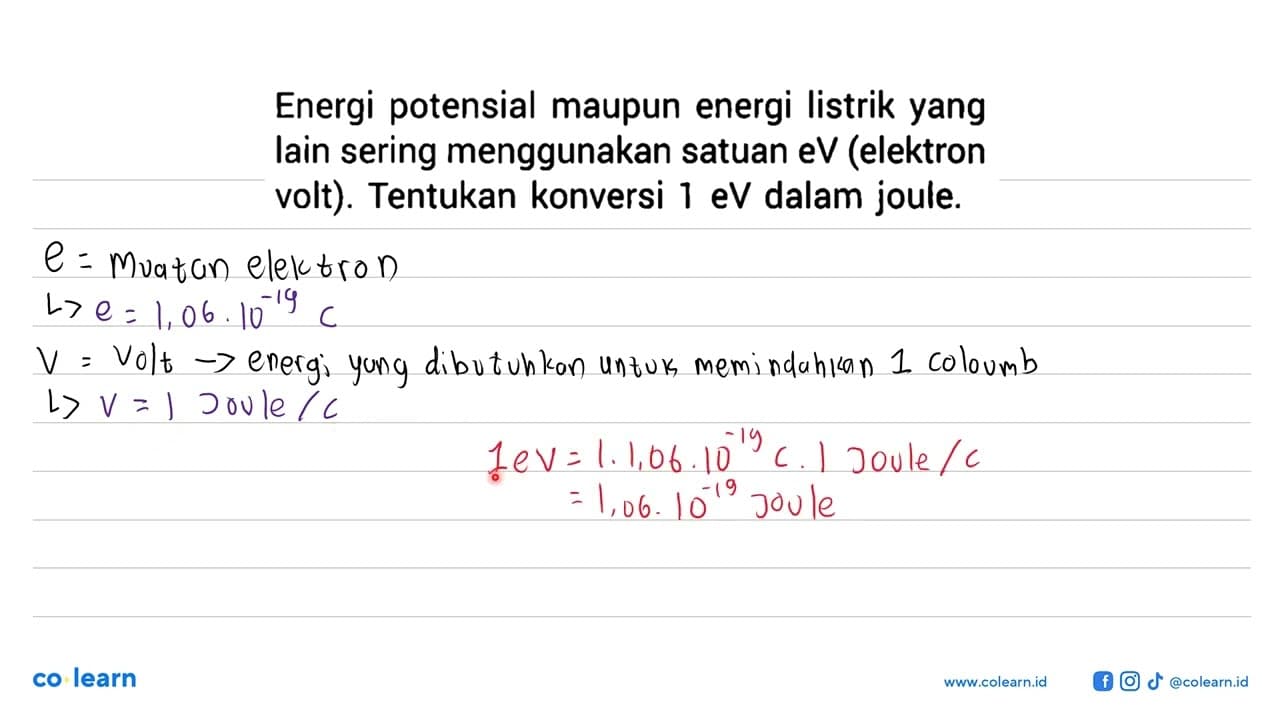 Energi potensial maupun energi listrik yang
lain sering menggunakan satuan eV (elektron
volt). Tentukan konversi 1 eV dalam joule.
e = muatan elektron
↳ e = 1,06 . 10⁻¹⁹ C
V = Volt → energi yang dibutuhkan untuk memindahkan 1 coloumb
↳ V = 1 Joule/C
1 eV = 1 . 1,06 . 10⁻¹⁹ C . 1 Joule/C
= 1,06 . 10⁻¹⁹ Joule
co learn
www.colearn.id
@colearn.id